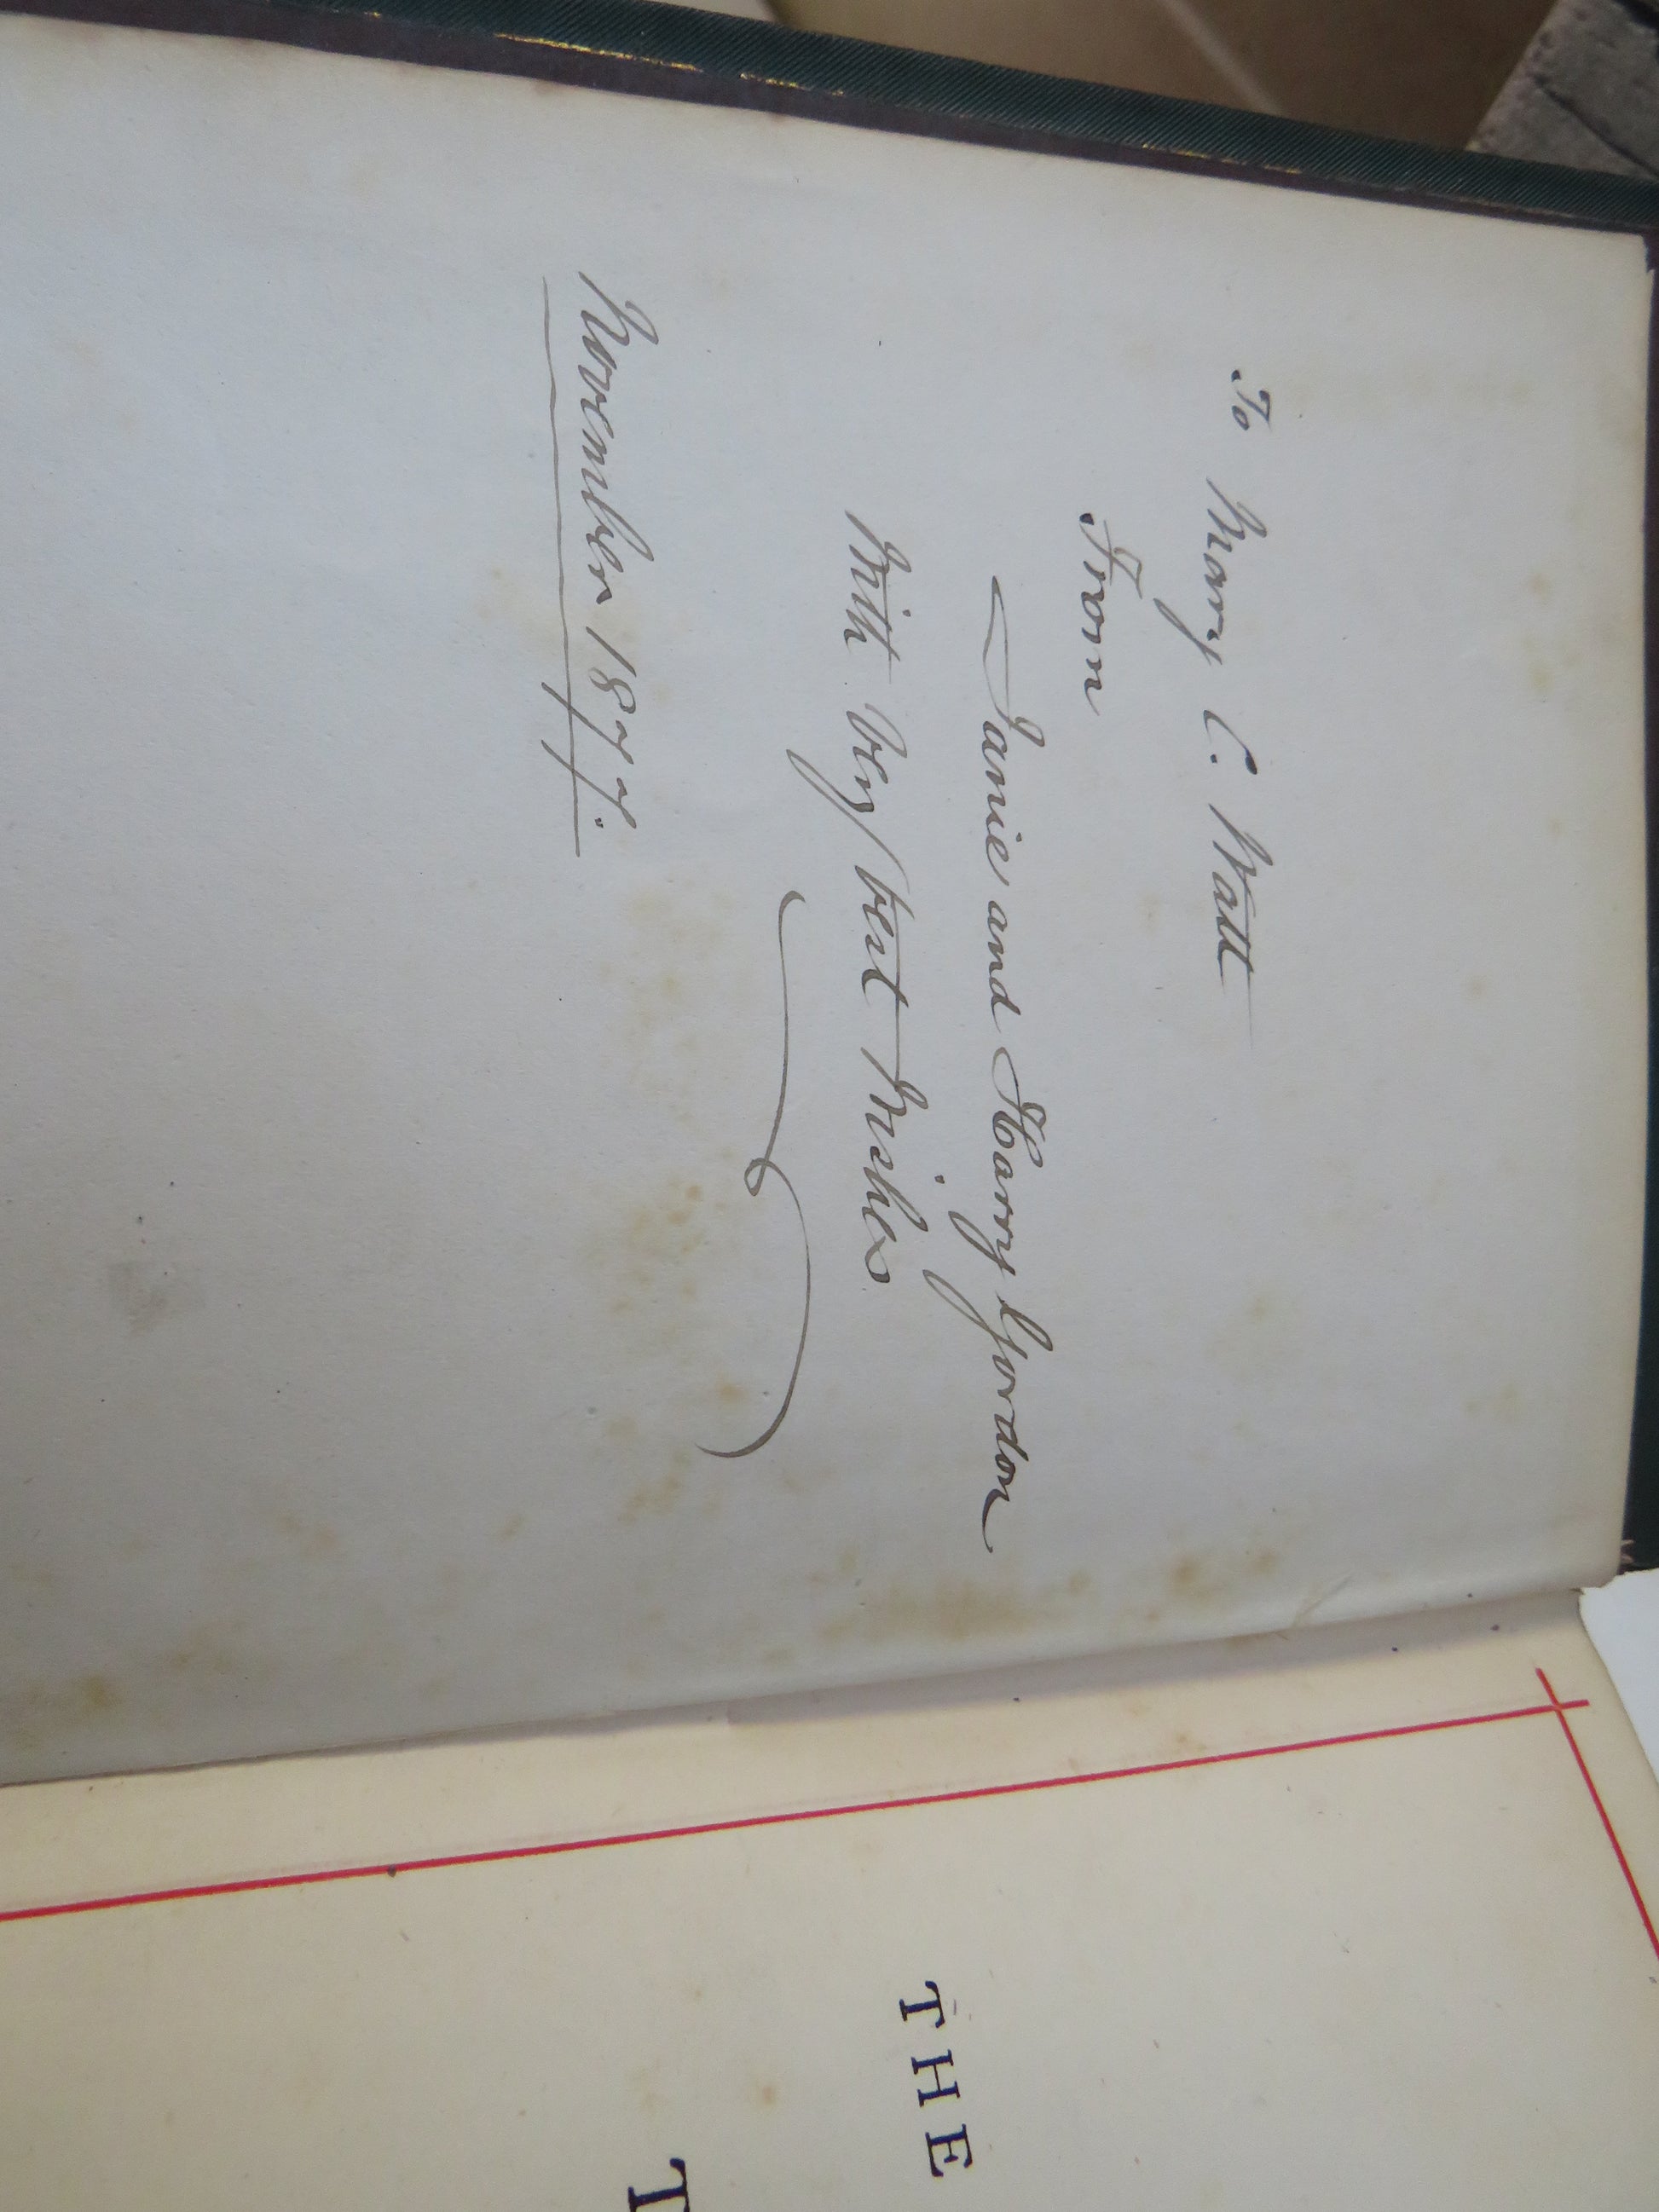 To Mary C. Watt
From
Janie and Harry Gordon
With very best wishes
November 1877.
THE
T